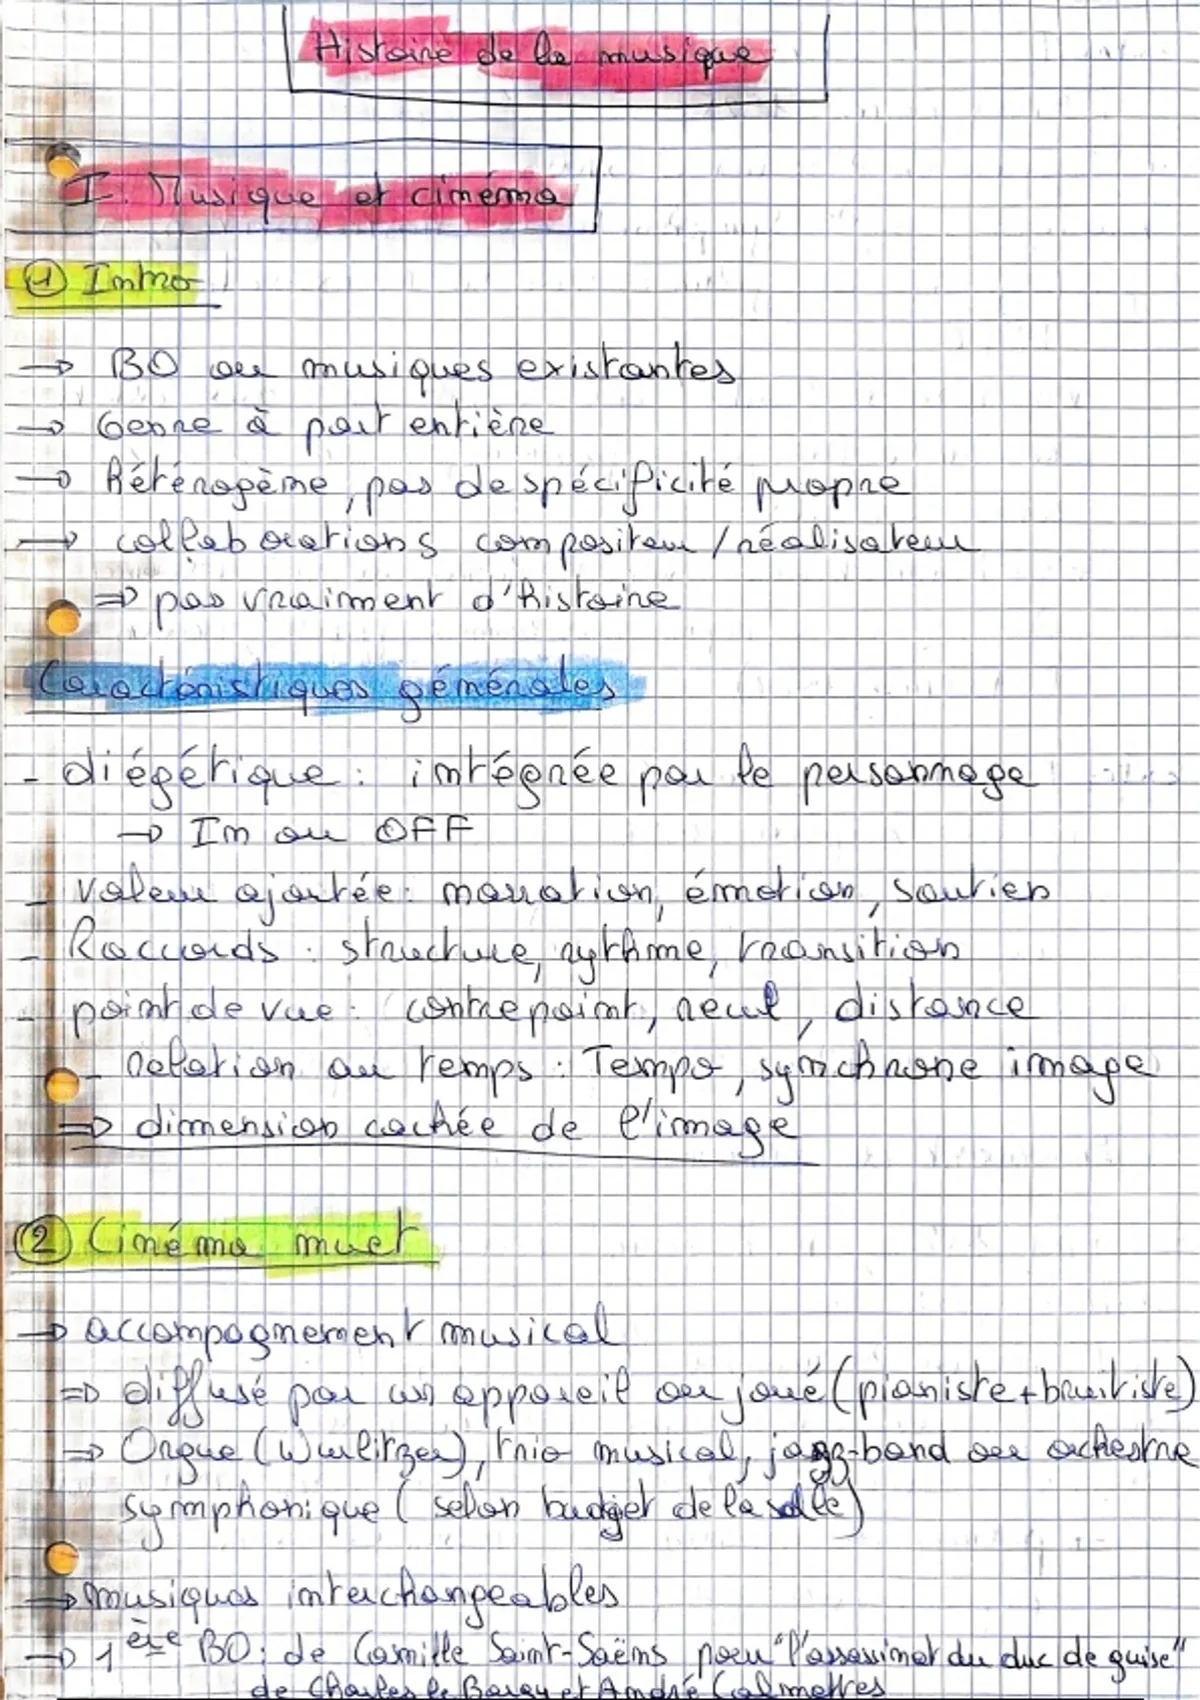 Histoire de la musique
I. Musique et cinéma
① Intro
→ BO ou musiques existantes
→ Genre à part entière
→ hétérogène, pas de spécificité propre
→ collaborations compositeur / réalisateur
⇒ pas vraiment d'histoire
Caractéristiques générales
- diégétique : intégrée par le personnage
→ In ou OFF
- valeur ajoutée : narration, émotion, soutien
- Raccords : structure, rythme, transition
- point de vue : contrepoint, neut, distance
- relation au temps : Tempo, synchrone image
⇒ dimension cachée de l'image
② Cinéma muet
→ accompagnement musical
⇒ diffusé par un appareil ou joué (pianiste + bruitiste)
⇒ Orgue (Wurlitzer), trio musical, jazz-band ou orchestre
symphonique ( selon budget de la salle)
→ musiques interchangeables
→ 1ère BO : de Camille Saint-Saëns pour "l'assassinat du duc de guise"
de Charles le Bargy et André Calmettes